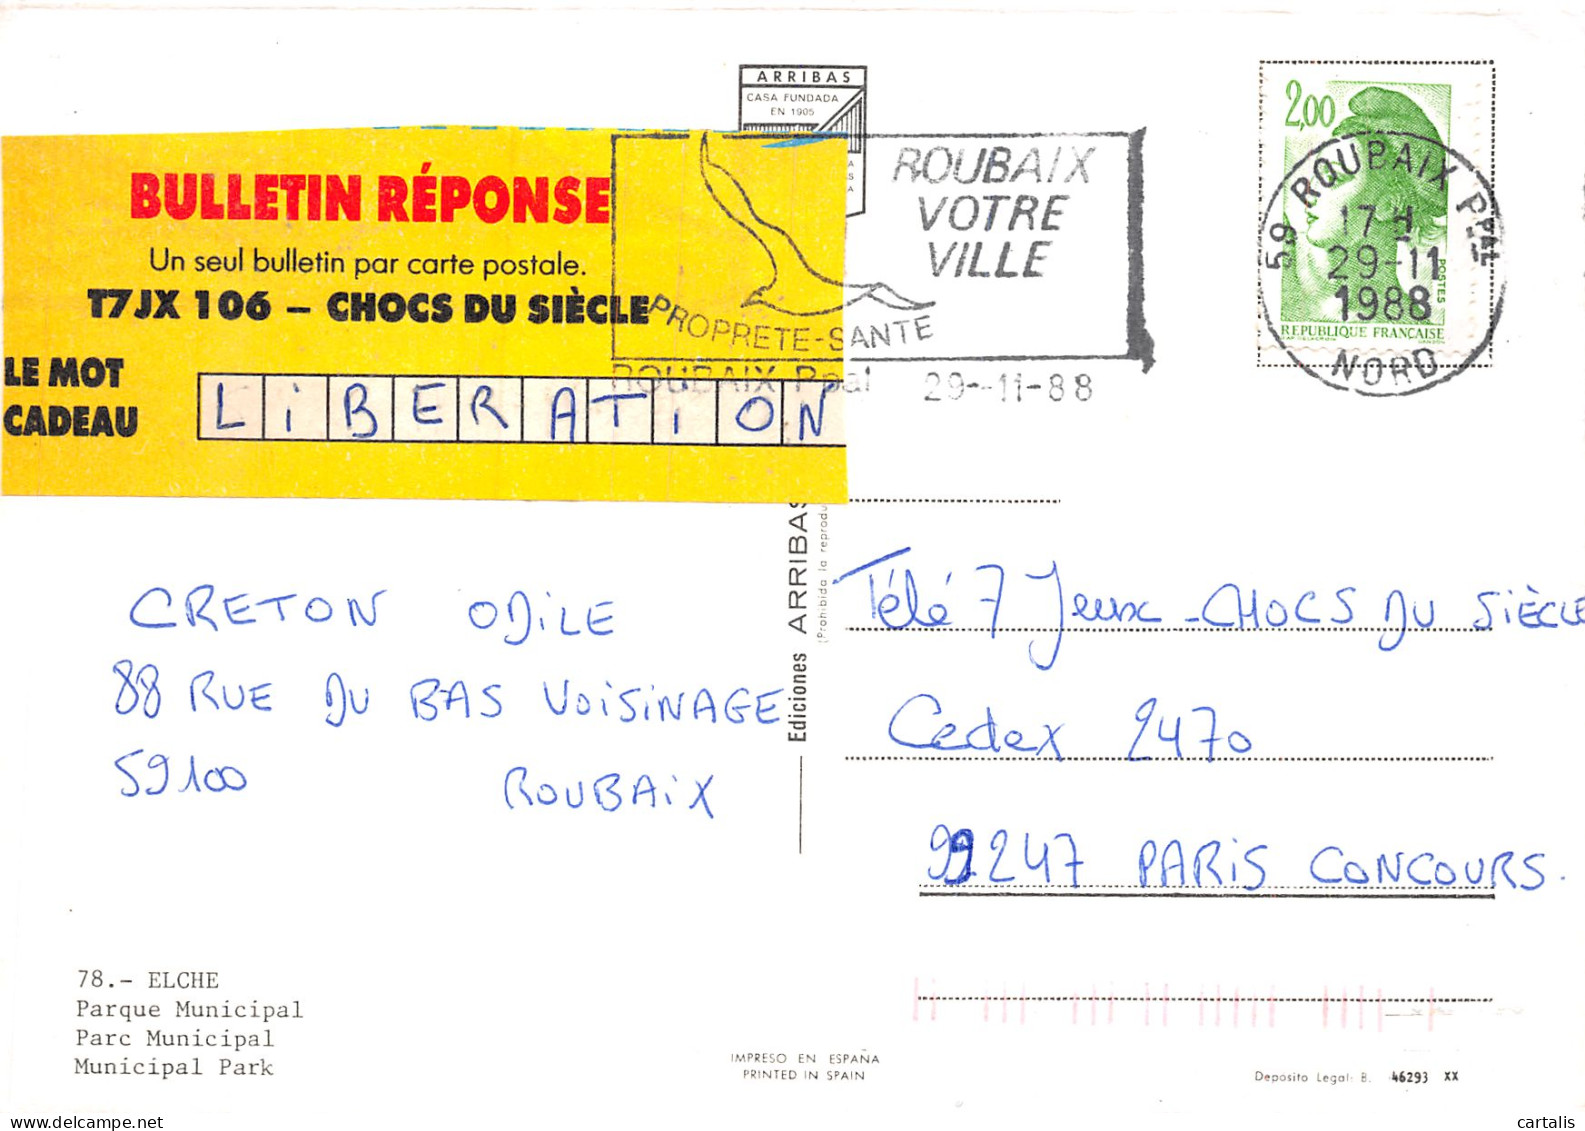 ARRIBAS
CASA FUNDADA
EN 1905
BULLETIN RÉPONSE
Un seul bulletin par carte postale.
T7JX 106 – CHOCS DU SIÈCLE
LE MOT
CADEAU
LiBERATiON
ROUBAIX
VOTRE
VILLE
PROPRETE-SANTE
ROUBAIX Ppal 29-11-88
2,00
POSTES
REPUBLIQUE FRANÇAISE
59 ROUBAIX PPAL
17-H
29-11
1988
NORD
Ediciones ARRIBAS
(Prohibida la reprodu
CRETON ODiLE
88 RUE DU BAS VOiSiNAGE
59100 ROUBAiX
Télé 7 Jeux - CHOCS DU SiÈCLE
Cedex 2470
99247 PARiS CONCOURS.
78.- ELCHE
Parque Municipal
Parc Municipal
Municipal Park
IMPRESO EN ESPAÑA
PRINTED IN SPAIN
Deposito Legal: B. 46293 XX
cartalis